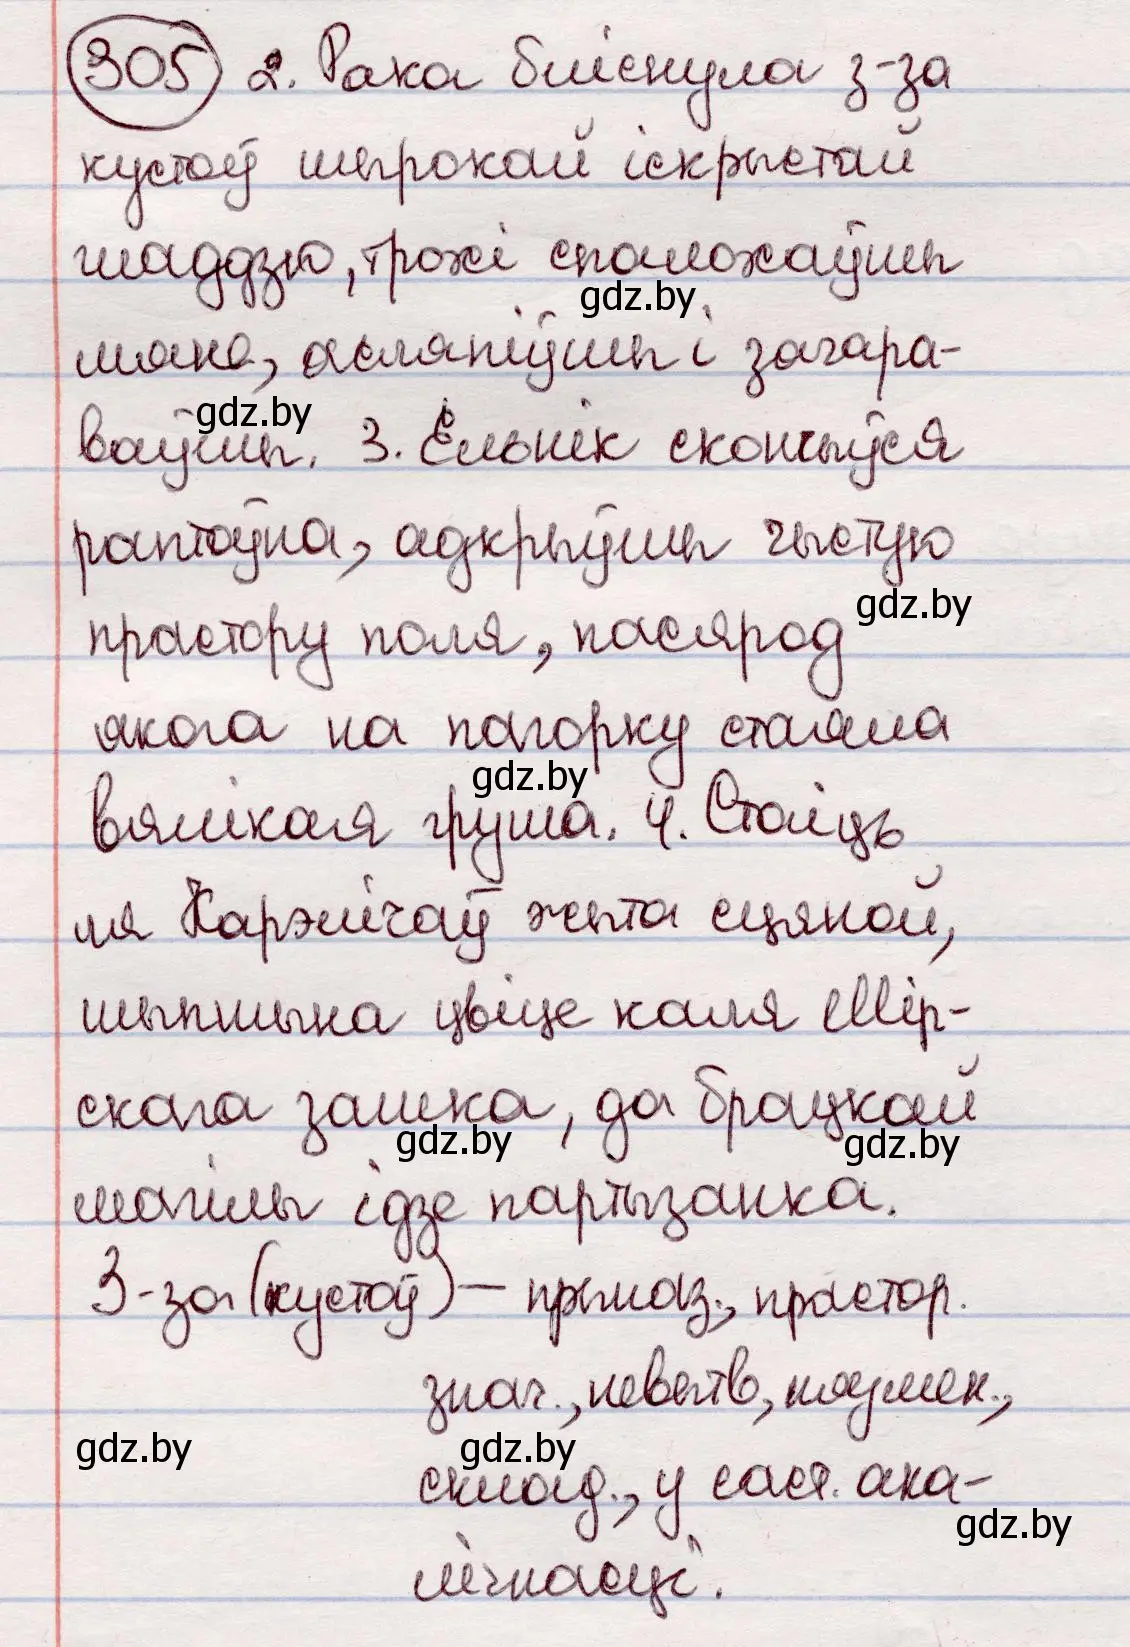 305 2. Рака бліснула з-за
кустоў шырокай іскрыстай
гладдзю, трохі спалохаўшы
gdz.by
мяне, асляпіўшы і зачара-
gdz.by
ваўшы. 3. Ельнік скончыўся
раптоўна, адкрыўшы чыстую
gdz.by
прастору поля, пасярод
якога на пагорку стаяла
gdz.by
вялікая груша. 4. Стаіць
ля Карэлічаў жыта сцяной,
шыпшына цвіце каля Мір-
скага замка, да брацкай
gdz.by gdz.by
магілы ідзе партызанка.
З-за (кустоў) – прыназ., прастор.
знач., невытв., няўмен.,
gdz.by gdz.by
склад., у саст. ака-
gdz.by
лічнасці.